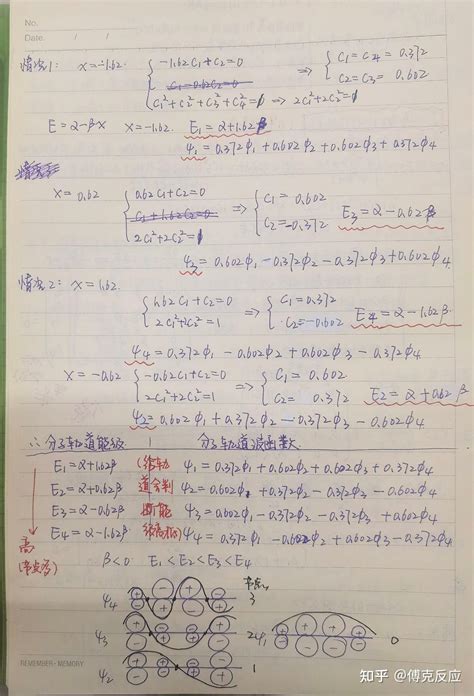 No.
Date / /
情况1: x=-1.62 { -1.62C₁+C₂=0
C₁-0.62C₂=0
C₁²+C₂²+C₃²+C₄²=1 ⇒ 2C₁²+2C₂²=1
⇒ { C₁=C₄=0.372
C₂=C₃=0.602
E=α-βx x=-1.62. E₁=α+1.62β
ψ₁=0.372φ₁+0.602φ₂+0.602φ₃+0.372φ₄
x=0.62 { 0.62C₁+C₂=0
C₂+1.62C₂=0
2C₁²+2C₂²=1
⇒ { C₁=0.602
C₂=-0.372
E₃=α-0.62β
ψ₃=0.602φ₁-0.372φ₂-0.372φ₃+0.602φ₄
情况2: x=1.62. { 1.62C₁+C₂=0
2C₁²+2C₂²=1
⇒ { C₁=0.372
C₂=-0.602
E₄=α-1.62β.
ψ₄=0.372φ₁-0.602φ₂+0.602φ₃-0.372φ₄
x=-0.62 { -0.62C₁+C₂=0
2C₁²+2C₂²=1
⇒ { C₁=0.602
C₂=0.372
E₂=α+0.62β
ψ₂=0.602φ₁+0.372φ₂-0.372φ₃-0.602φ₄
∴分子轨道能级 分子轨道波函数
E₁=α+1.62β ψ₁=0.372φ₁+0.602φ₂+0.602φ₃+0.372φ₄
E₂=α+0.62β ψ₂=0.602φ₁+0.372φ₂-0.372φ₃-0.602φ₄
E₃=α-0.62β ψ₃=0.602φ₁-0.372φ₂-0.372φ₃+0.602φ₄
E₄=α-1.62β ψ₄=0.372φ₁-0.602φ₂+0.602φ₃-0.372φ₄
高
β<0 E₁<E₂<E₃<E₄
节点
ψ₄ 3
ψ₃ 2
ψ₁ 0
ψ₂ 1
REMEMBER·MEMORY
知乎 @傅克反应